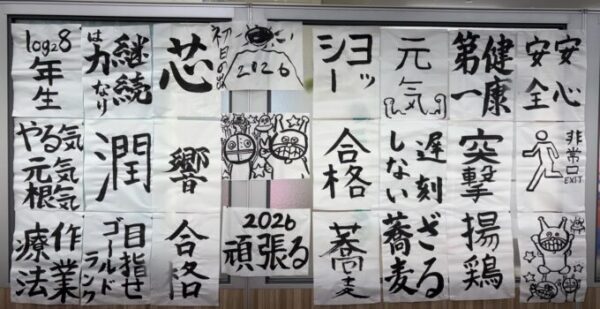 log₂8
年生
継続
は力なり
芯
初日の出
2026
ヨッ
シー
元気
健康
第一
安心
安全
やる気
元気
根気
潤
響
合格
遅刻
しない
突撃
非常口
EXIT
作業
療法
目指せ
ゴールド
ランク
合格
2026
頑張る
蕎麦
ざる
蕎麦
揚鶏